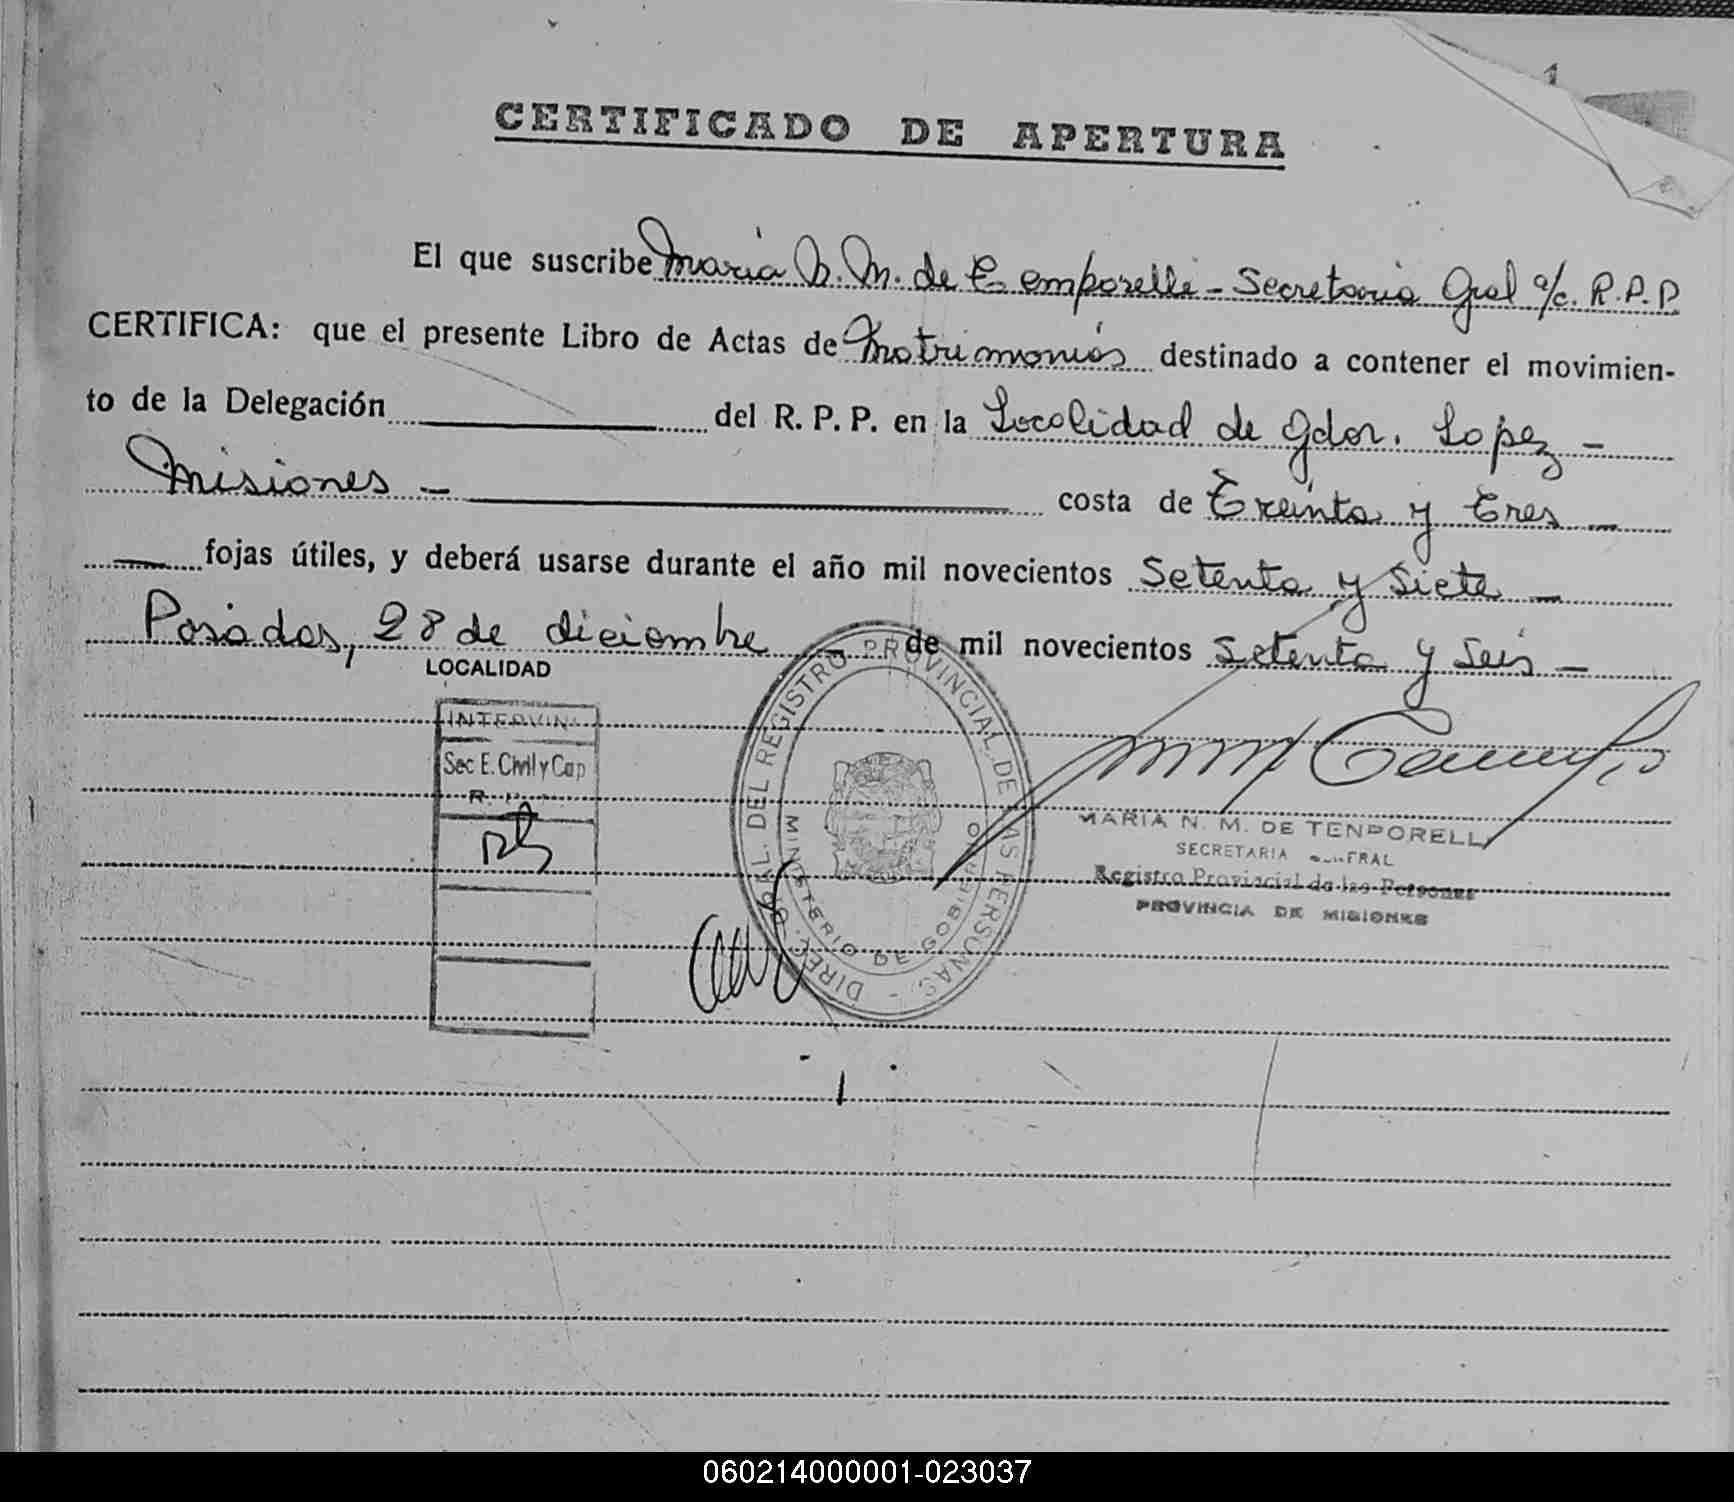 1
CERTIFICADO DE APERTURA
El que suscribe Maria N. M. de Temporelli - Secretaria Gral a/c. R.P.P
CERTIFICA: que el presente Libro de Actas de Matrimonios destinado a contener el movimien-
to de la Delegación del R. P. P. en la Localidad de Gdor. Lopez -
Misiones - costa de Treinta y Tres -
fojas útiles, y deberá usarse durante el año mil novecientos Setenta y Siete -
Posadas, 28 de diciembre de mil novecientos Setenta y Seis -
LOCALIDAD
INTERVINO
Sec E. Civil y Cap
DIREC. GRAL. DEL REGISTRO PROVINCIAL DE LAS PERSONAS -
MINISTERIO DE GOBIERNO
MARIA N. M. DE TENPORELLI
SECRETARIA GENERAL
Registro Provincial de las Personas
PROVINCIA DE MISIONES
060214000001-023037